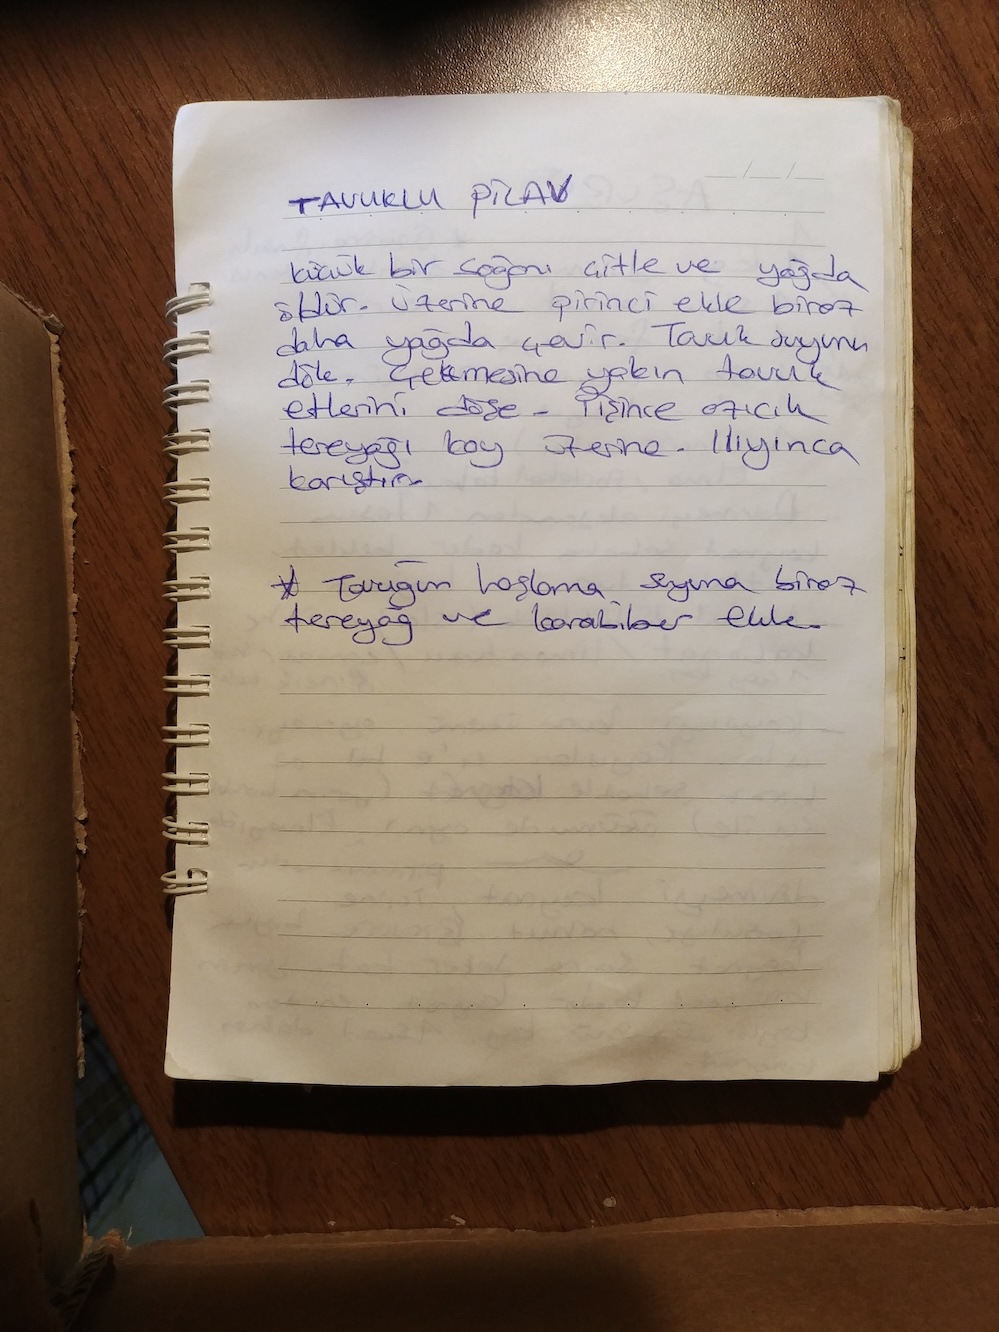 TAVUKLU PİLAV
küçük bir soğanı çitle ve yağda
öldür. Üzerine pirinci ekle biraz
daha yağda çevir. Tavuk suyunu
dök. Çekmesine yakın tavuk
etlerini döşe. Pişince azıcık
tereyağı koy üzerine. Iliyınca
karıştır.
* Tavuğun haşlama suyuna biraz
tereyağ ve karabiber ekle.